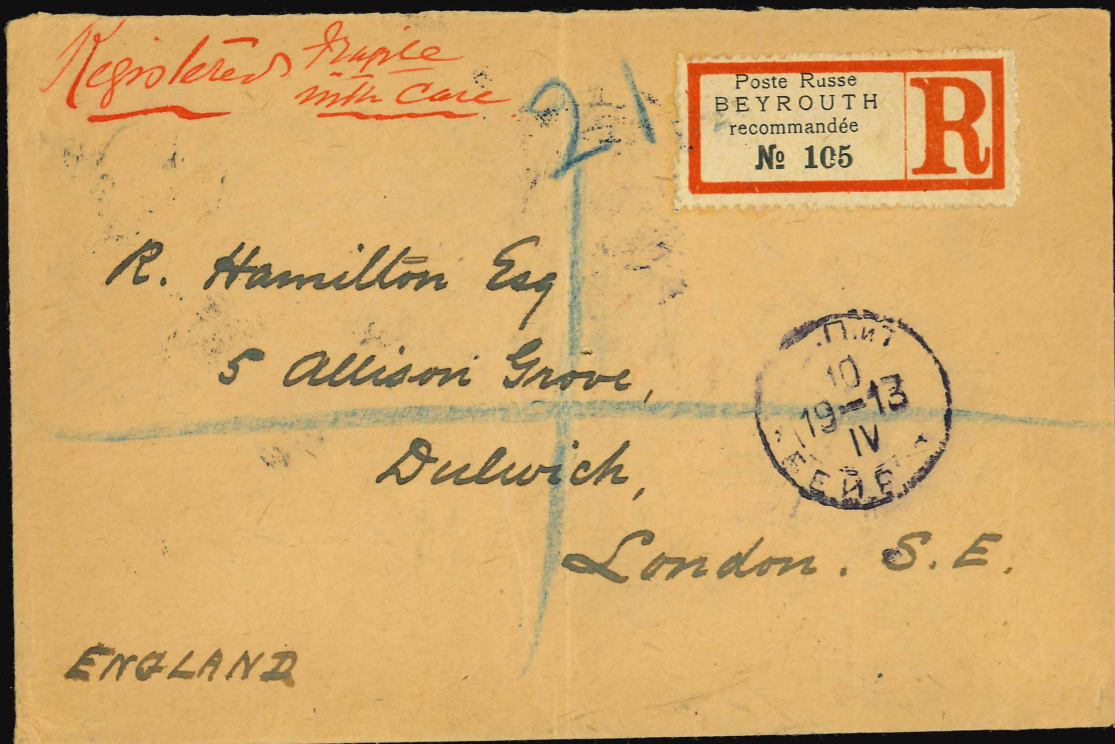 Registered Fragile
with Care
21
Poste Russe
BEYROUTH
recommandée
№ 105
R
R. Hamilton Esq
5 Allison Grove,
Dulwich,
London. S.E.
ENGLAND
10
19-13
IV